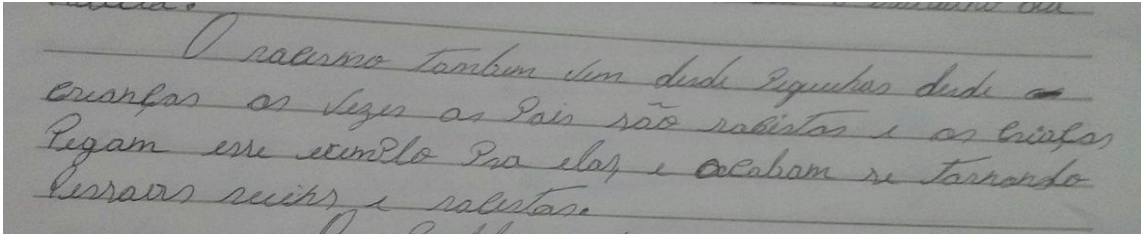 O racismo tambem vem desde Pequenas desde
crianças as vezes os Pais são racistas e as crianças
Pegam esse exemplo Pra elas, e acabam se tornando
Pessoas e racistas.